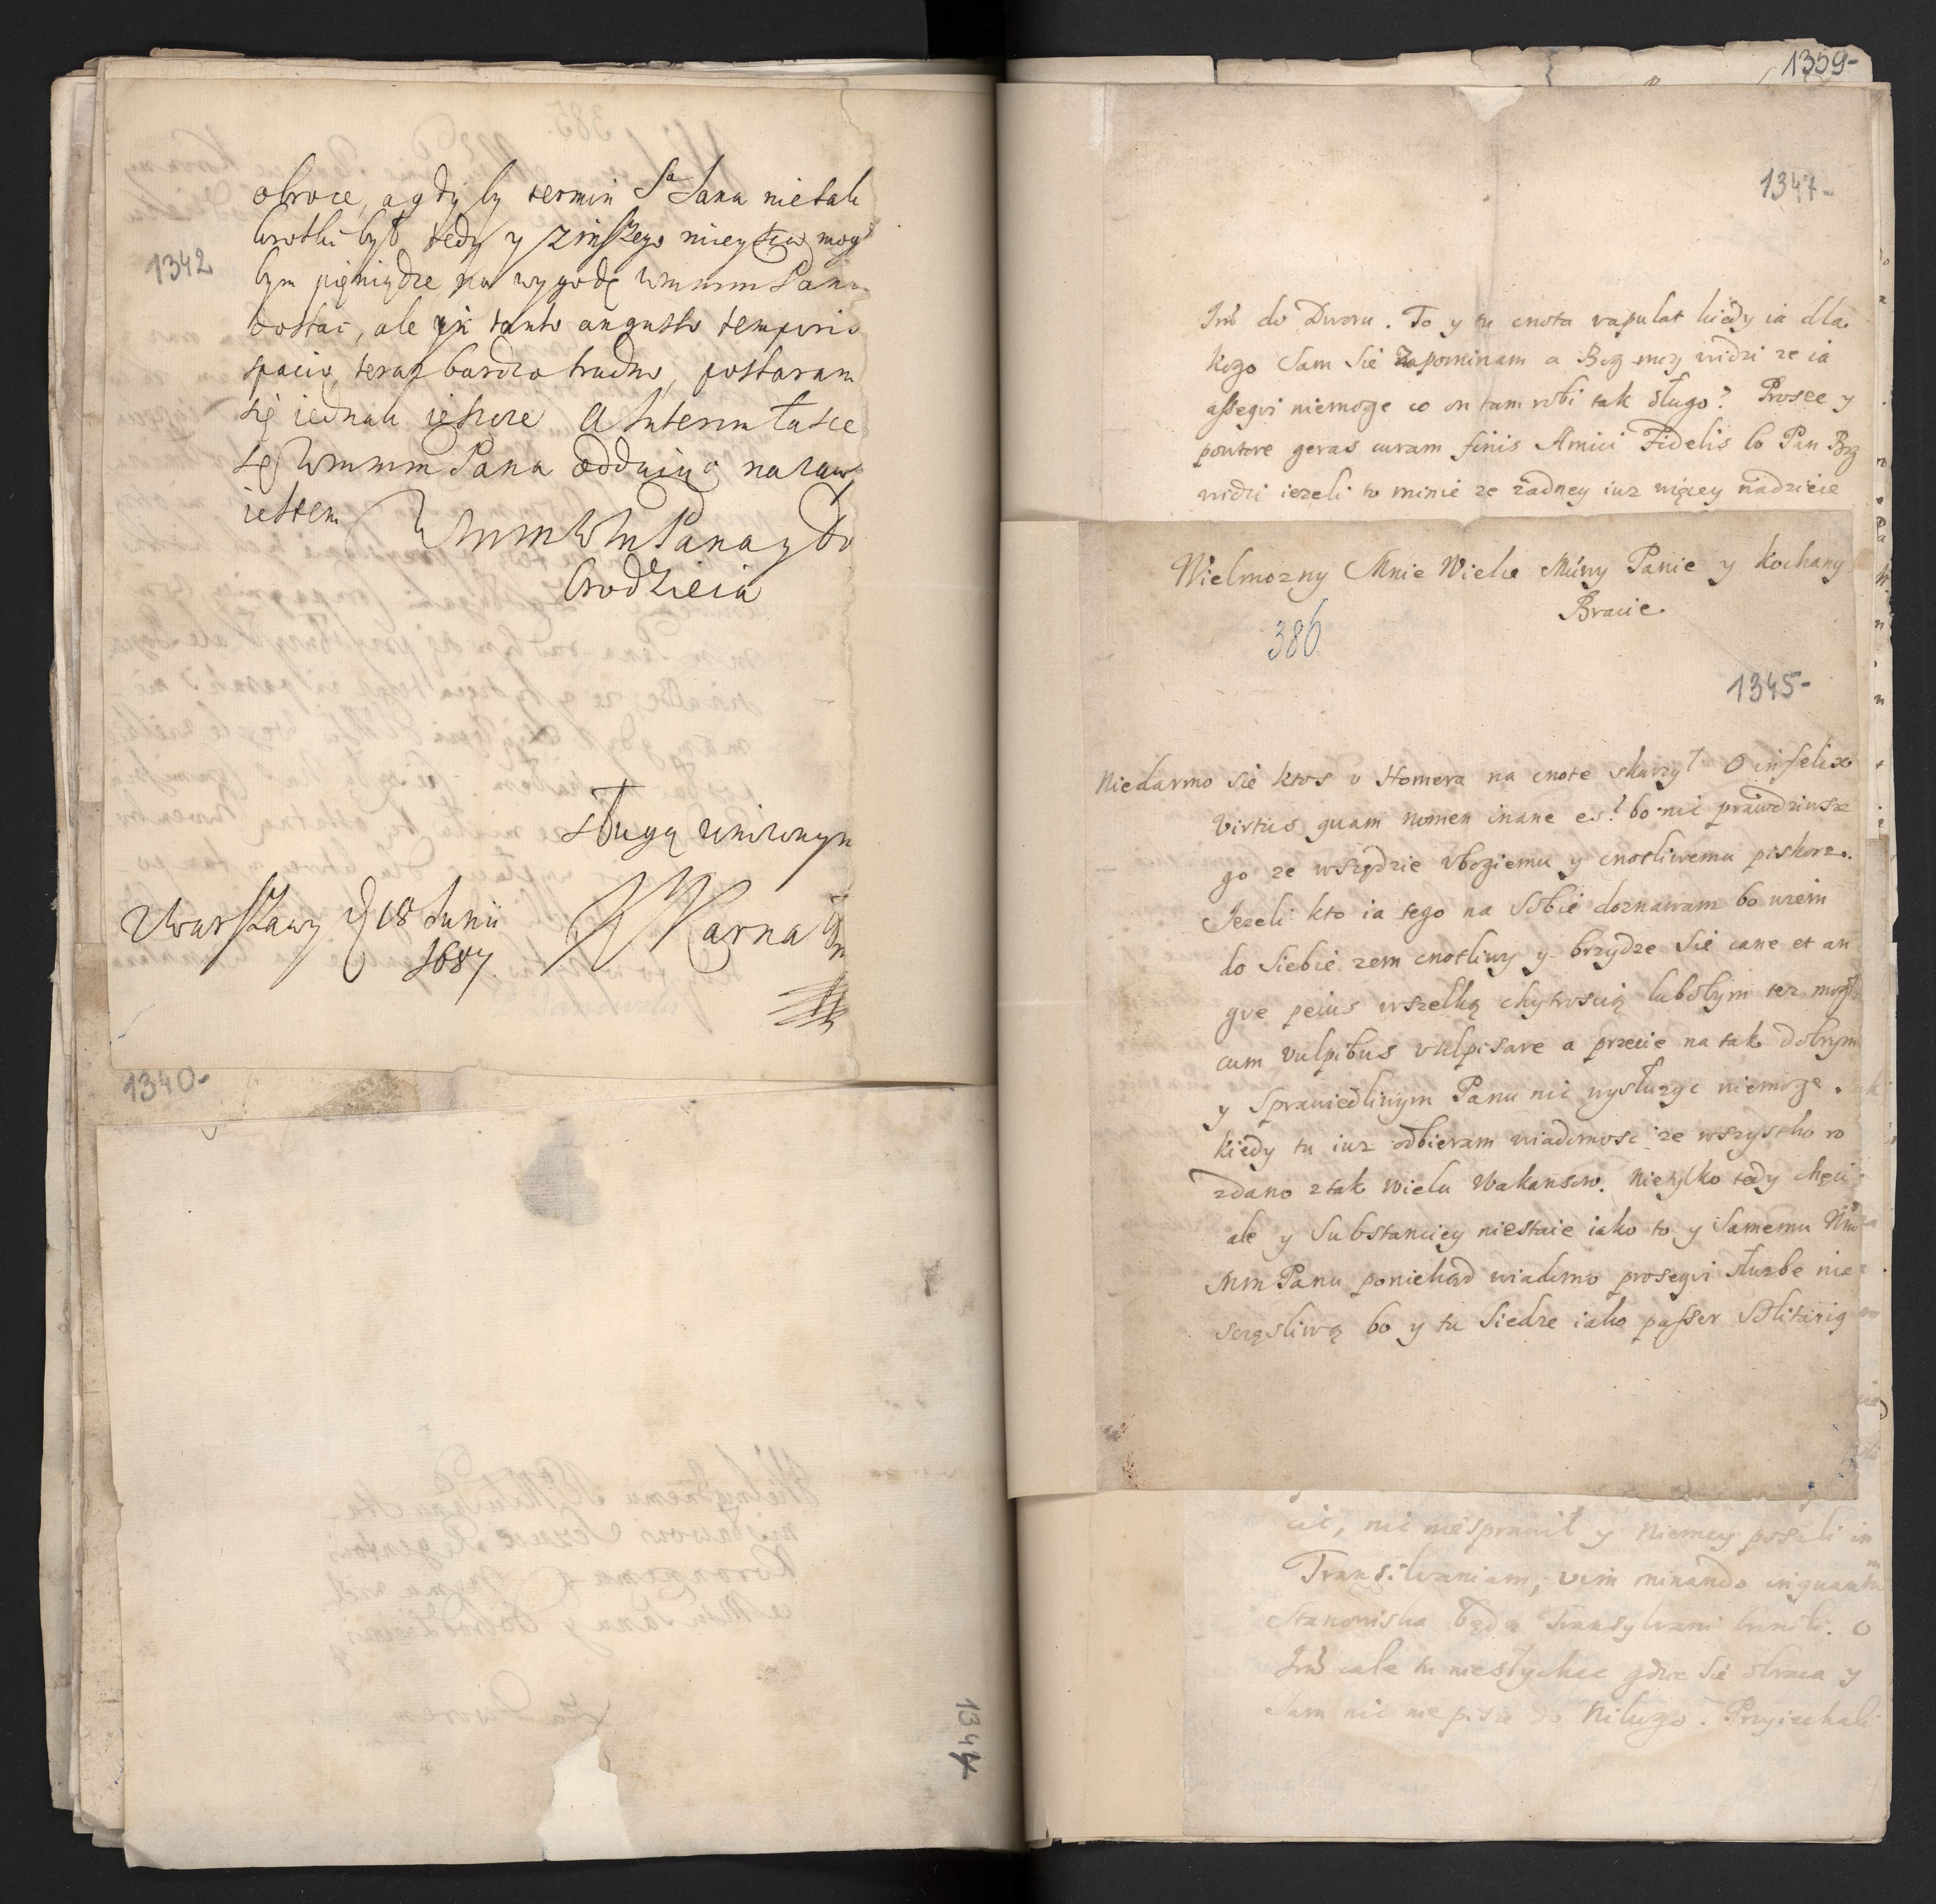 1342
obroce, a gdy by termin Sa Jana nie tak
krotki był tedy y z inszego mieysca mogł
bym pieniądze na wygodę Wmmm Pana
dostać, ale in tanto angusto temporis
spacio, teraz bardzo trudno, postaram
się iednak ieszcze a interim łasce
się Wmmm Pana oddaiąc na zaw
iestem
WmmWm Pana y Do
brodzieia
sługą uniżonym
Zwarszawy d 18 Junii
1687
1340-
1344
1359-
1347-
Imć do Dworu. To y tu cnota vapulat kiedy ia dla
kogo Sam Sie zapominam a Bog mey widzi ze ia
assegvi niemoge co on tam robi tak długo? Prosze y
powtore geras curam finis Amici Fidelis bo Pan Bog
widzi iezeli to minie ze żadney iuz więcey nadzieie
Wielmozny Mnie Wielce Mciwy Panie y kochany
Bracie
386.
1345-
Niedarmo sie ktos v Homera na cnote skarzył O infelix
virtus quam nomen inane es! bo nic prawdziwsze
go ze wszędzie vbogiemu y cnotliwemu piskorz.
Jezeli kto ia tego na Sobie doznawam bo wiem
do Siebie zem cnotliwy y brzydze Sie cane et an
gve peius wszelką chytroscią lubobym tez mogł
cum vulpibus vulpisare a przecie na tak dobrym
y Sprawiedliwym Panu nic wysłuzyc niemoge.
kiedy tu iuz odbieram wiadomosc ze wszystko ro
zdano z tak wielu Wakansow. Nietylko tedy chęci
ale y Substanciey niestaie iako to y Samemu Wm
Mm Panu poniekąd wiadomo prosegvi słuzbe nie
sczęsliwą bo y tu Siedze iako passer Solitarig
cie, nic niesprawił y Niemcy poszli in
Transilvaniam, vim minando inquantum
Stanowiska będą Transylvani bronili. O
Imć cale tu niesłychac gdzie Sie obraca y
Sam nic niepisze do Nikogo. Przyiechali